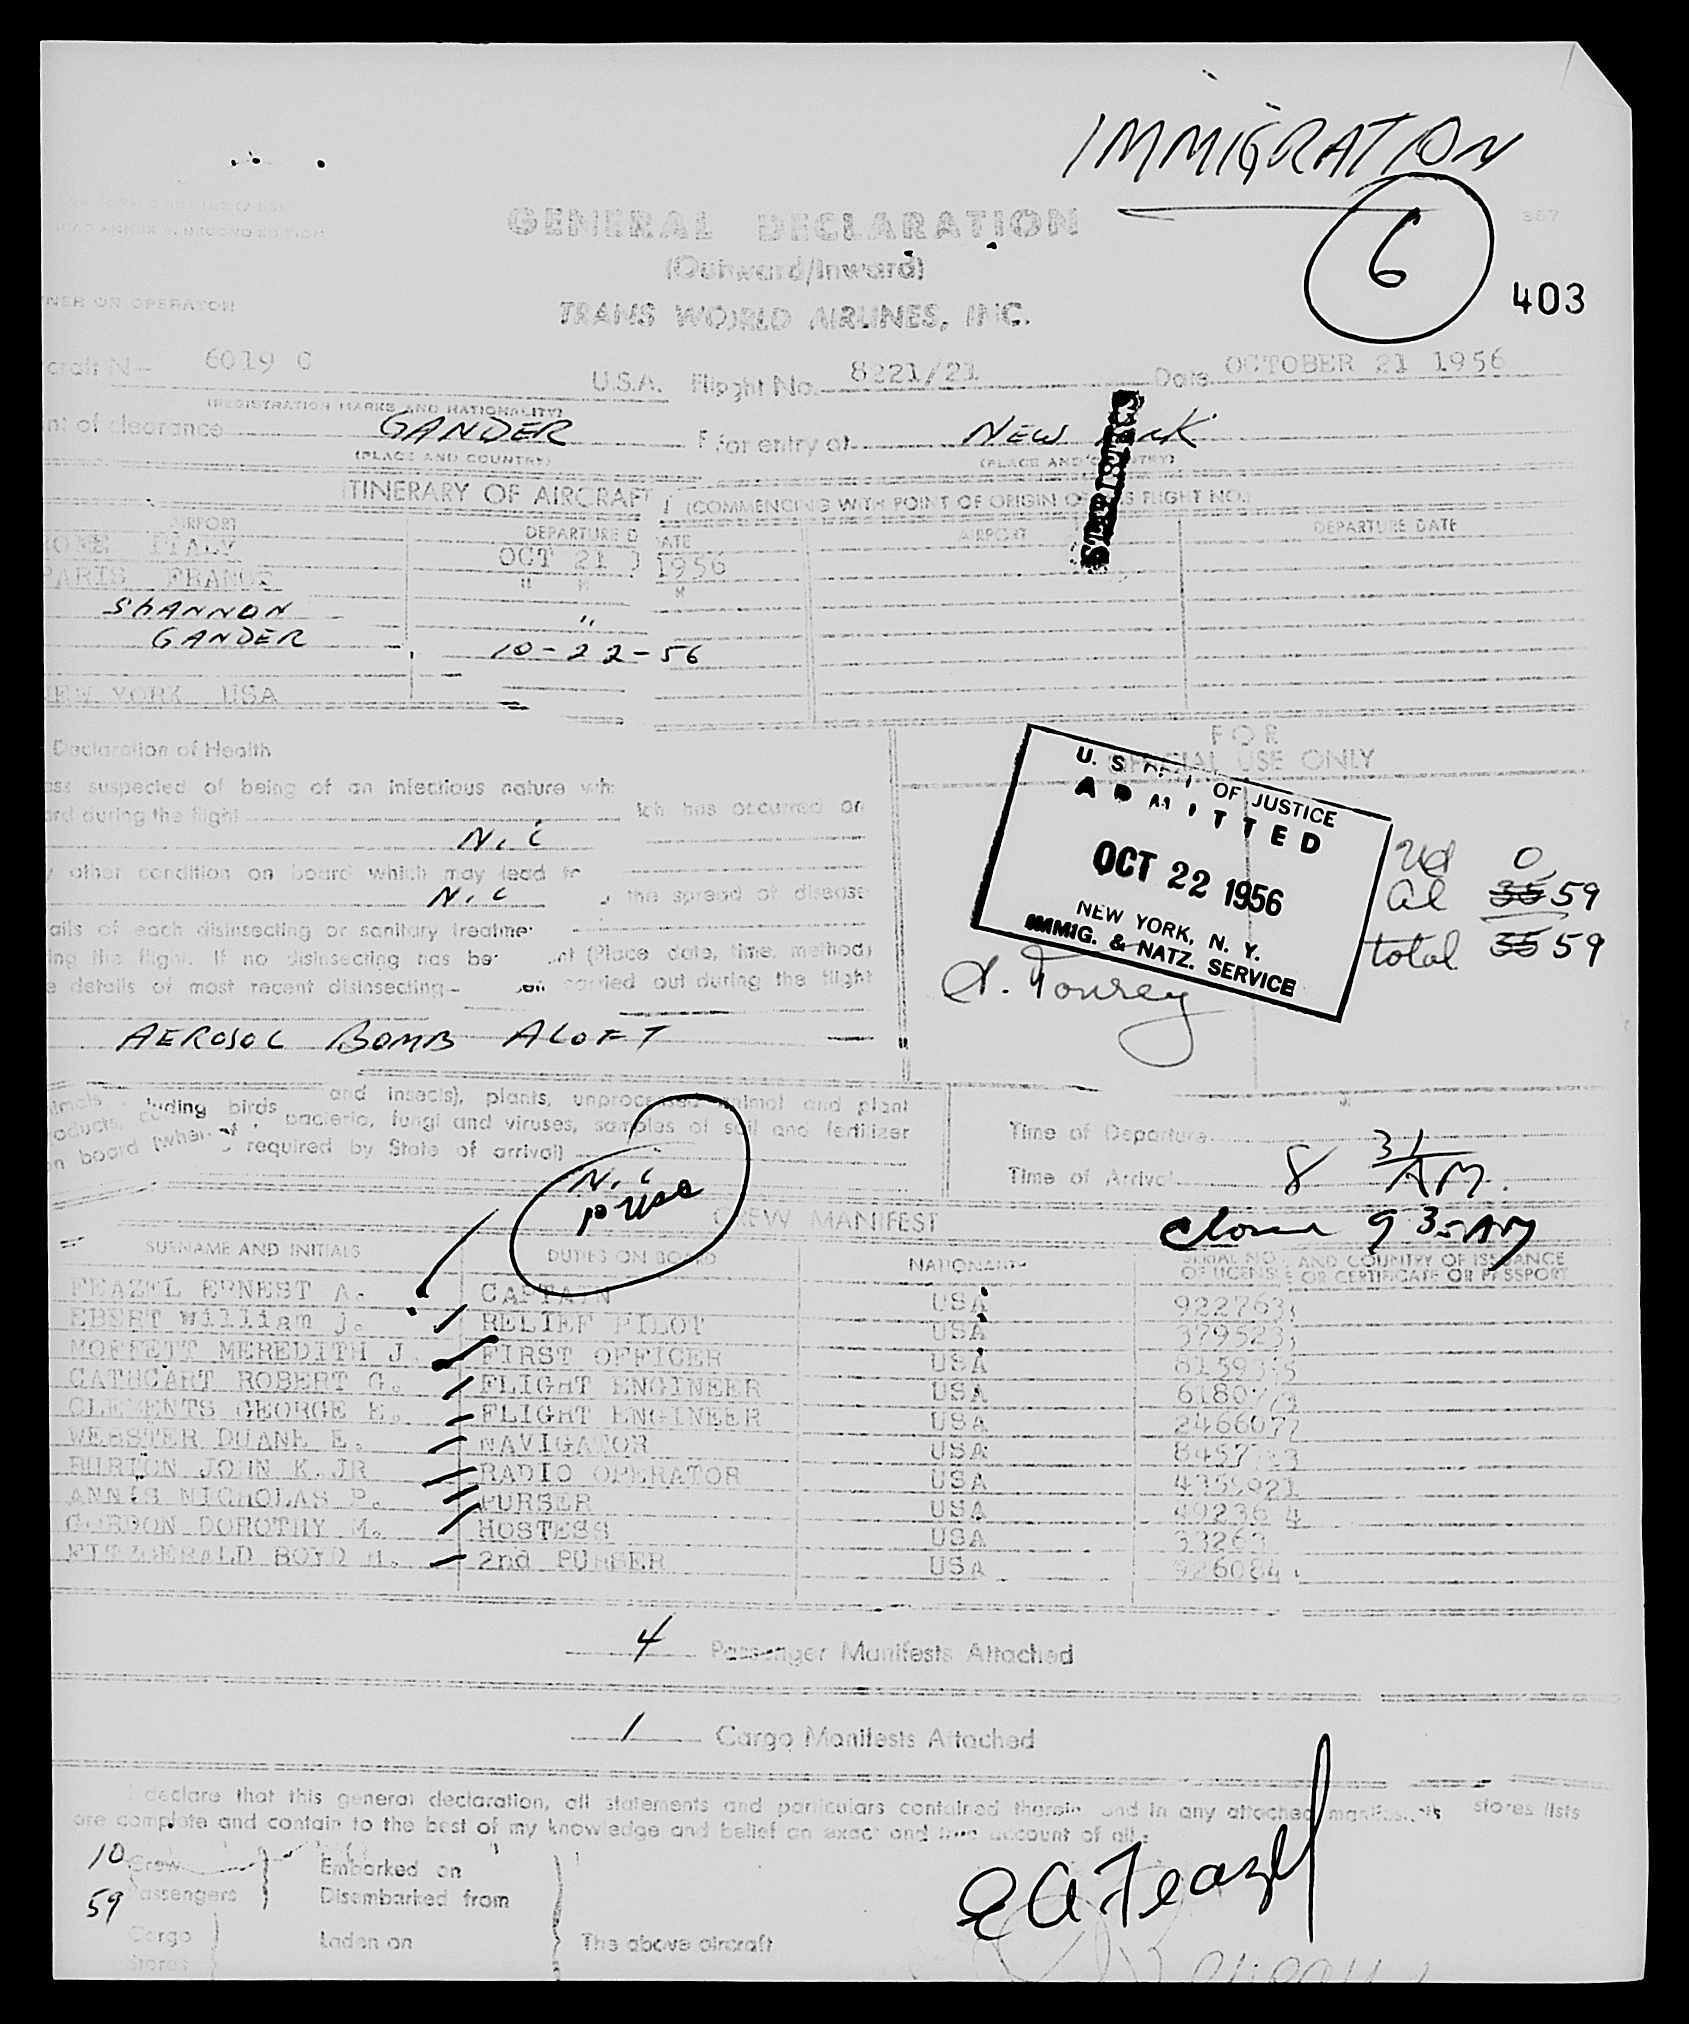 IMMIGRATION
6
367
403
GENERAL DECLARATION
(Outward/Inward)
NER OR OPERATOR
TRANS WORLD AIRLINES, INC.
craft N— 6019 C U.S.A. Flight No. 8221/21 Date OCTOBER 21 1956
(REGISTRATION MARKS AND NATIONALITY)
nt of clearance GANDER For entry at NEW
(PLACE AND COUNTRY)
ITINERARY OF AIRCRAFT (COMMENCING WITH POINT OF ORIGIN OF FLIGHT NO.)
AIRPORT DEPARTURE DATE AIRPORT DEPARTURE DATE
ROME ITALY OCT 21 1956
PARIS FRANCE " " "
SHANNON "
GANDER 10-22-56
NEW YORK USA
Declaration of Health
FOR
OFFICIAL USE ONLY
suspected of being of an infectious nature which has occurred on
ard during the flight
N.i
other condition on board which may lead to the spread of disease
N.i
ails of each disinsecting or sanitary treatment (Place date, time, method)
ing the flight. If no disinsecting has been carried out during the flight
e details of most recent disinsecting
AEROSOL BOMB ALOFT
U. S. DEPT OF JUSTICE
ADMITTED
OCT 22 1956
NEW YORK, N. Y.
IMMIG. & NATZ. SERVICE
0
al 35 59
total 35 59
nimals including birds and insects), plants, unprocessed animal and plant
roducts, bacteria, fungi and viruses, samples of soil and fertilizer
n board (when required by State of arrival)
N.i
Time of Departure
Time of Arrival 8 31 AM.
9 35 AM
CREW MANIFEST
SURNAME AND INITIALS DUTIES ON BOARD NATIONALITY SERIAL NO. AND COUNTRY OF ISSUANCE
OF LICENSE OR CERTIFICATE OR PASSPORT
FEAZEL ERNEST A. CAPTAIN USA 922763
EBERT William j. RELIEF PILOT USA 379523
MOFFETT MEREDITH J. FIRST OFFICER USA
CATHCART ROBERT G. FLIGHT ENGINEER USA
CLEMENTS GEORGE E. FLIGHT ENGINEER USA 2466077
WEBSTER DUANE E. NAVIGATOR USA
BURTON JOHN K.JR RADIO OPERATOR USA
ANNIS NICHOLAS P. PURSER USA
GORDON DOROTHY M. HOSTESS USA 33263
FITZGERALD BOYD H. 2nd PURSER USA 926084
4 Passenger Manifests Attached
1 Cargo Manifests Attached
declare that this general declaration, all statements and particulars contained therein and in any attached manifests stores lists
are complete and contain to the best of my knowledge and belief an exact and true account of all
10 Crew Embarked on
59 Passengers Disembarked from
Cargo Laden on The above aircraft
Stores
E A Feazel